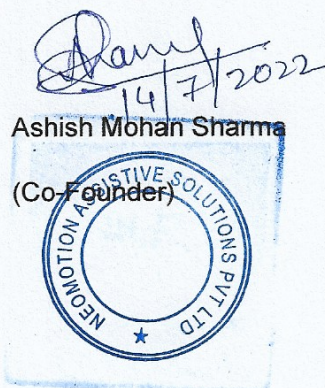 Sharma
14/7/2022
Ashish Mohan Sharma
(Co-Founder)
NEOMOTION ASSISTIVE SOLUTIONS PVT LTD